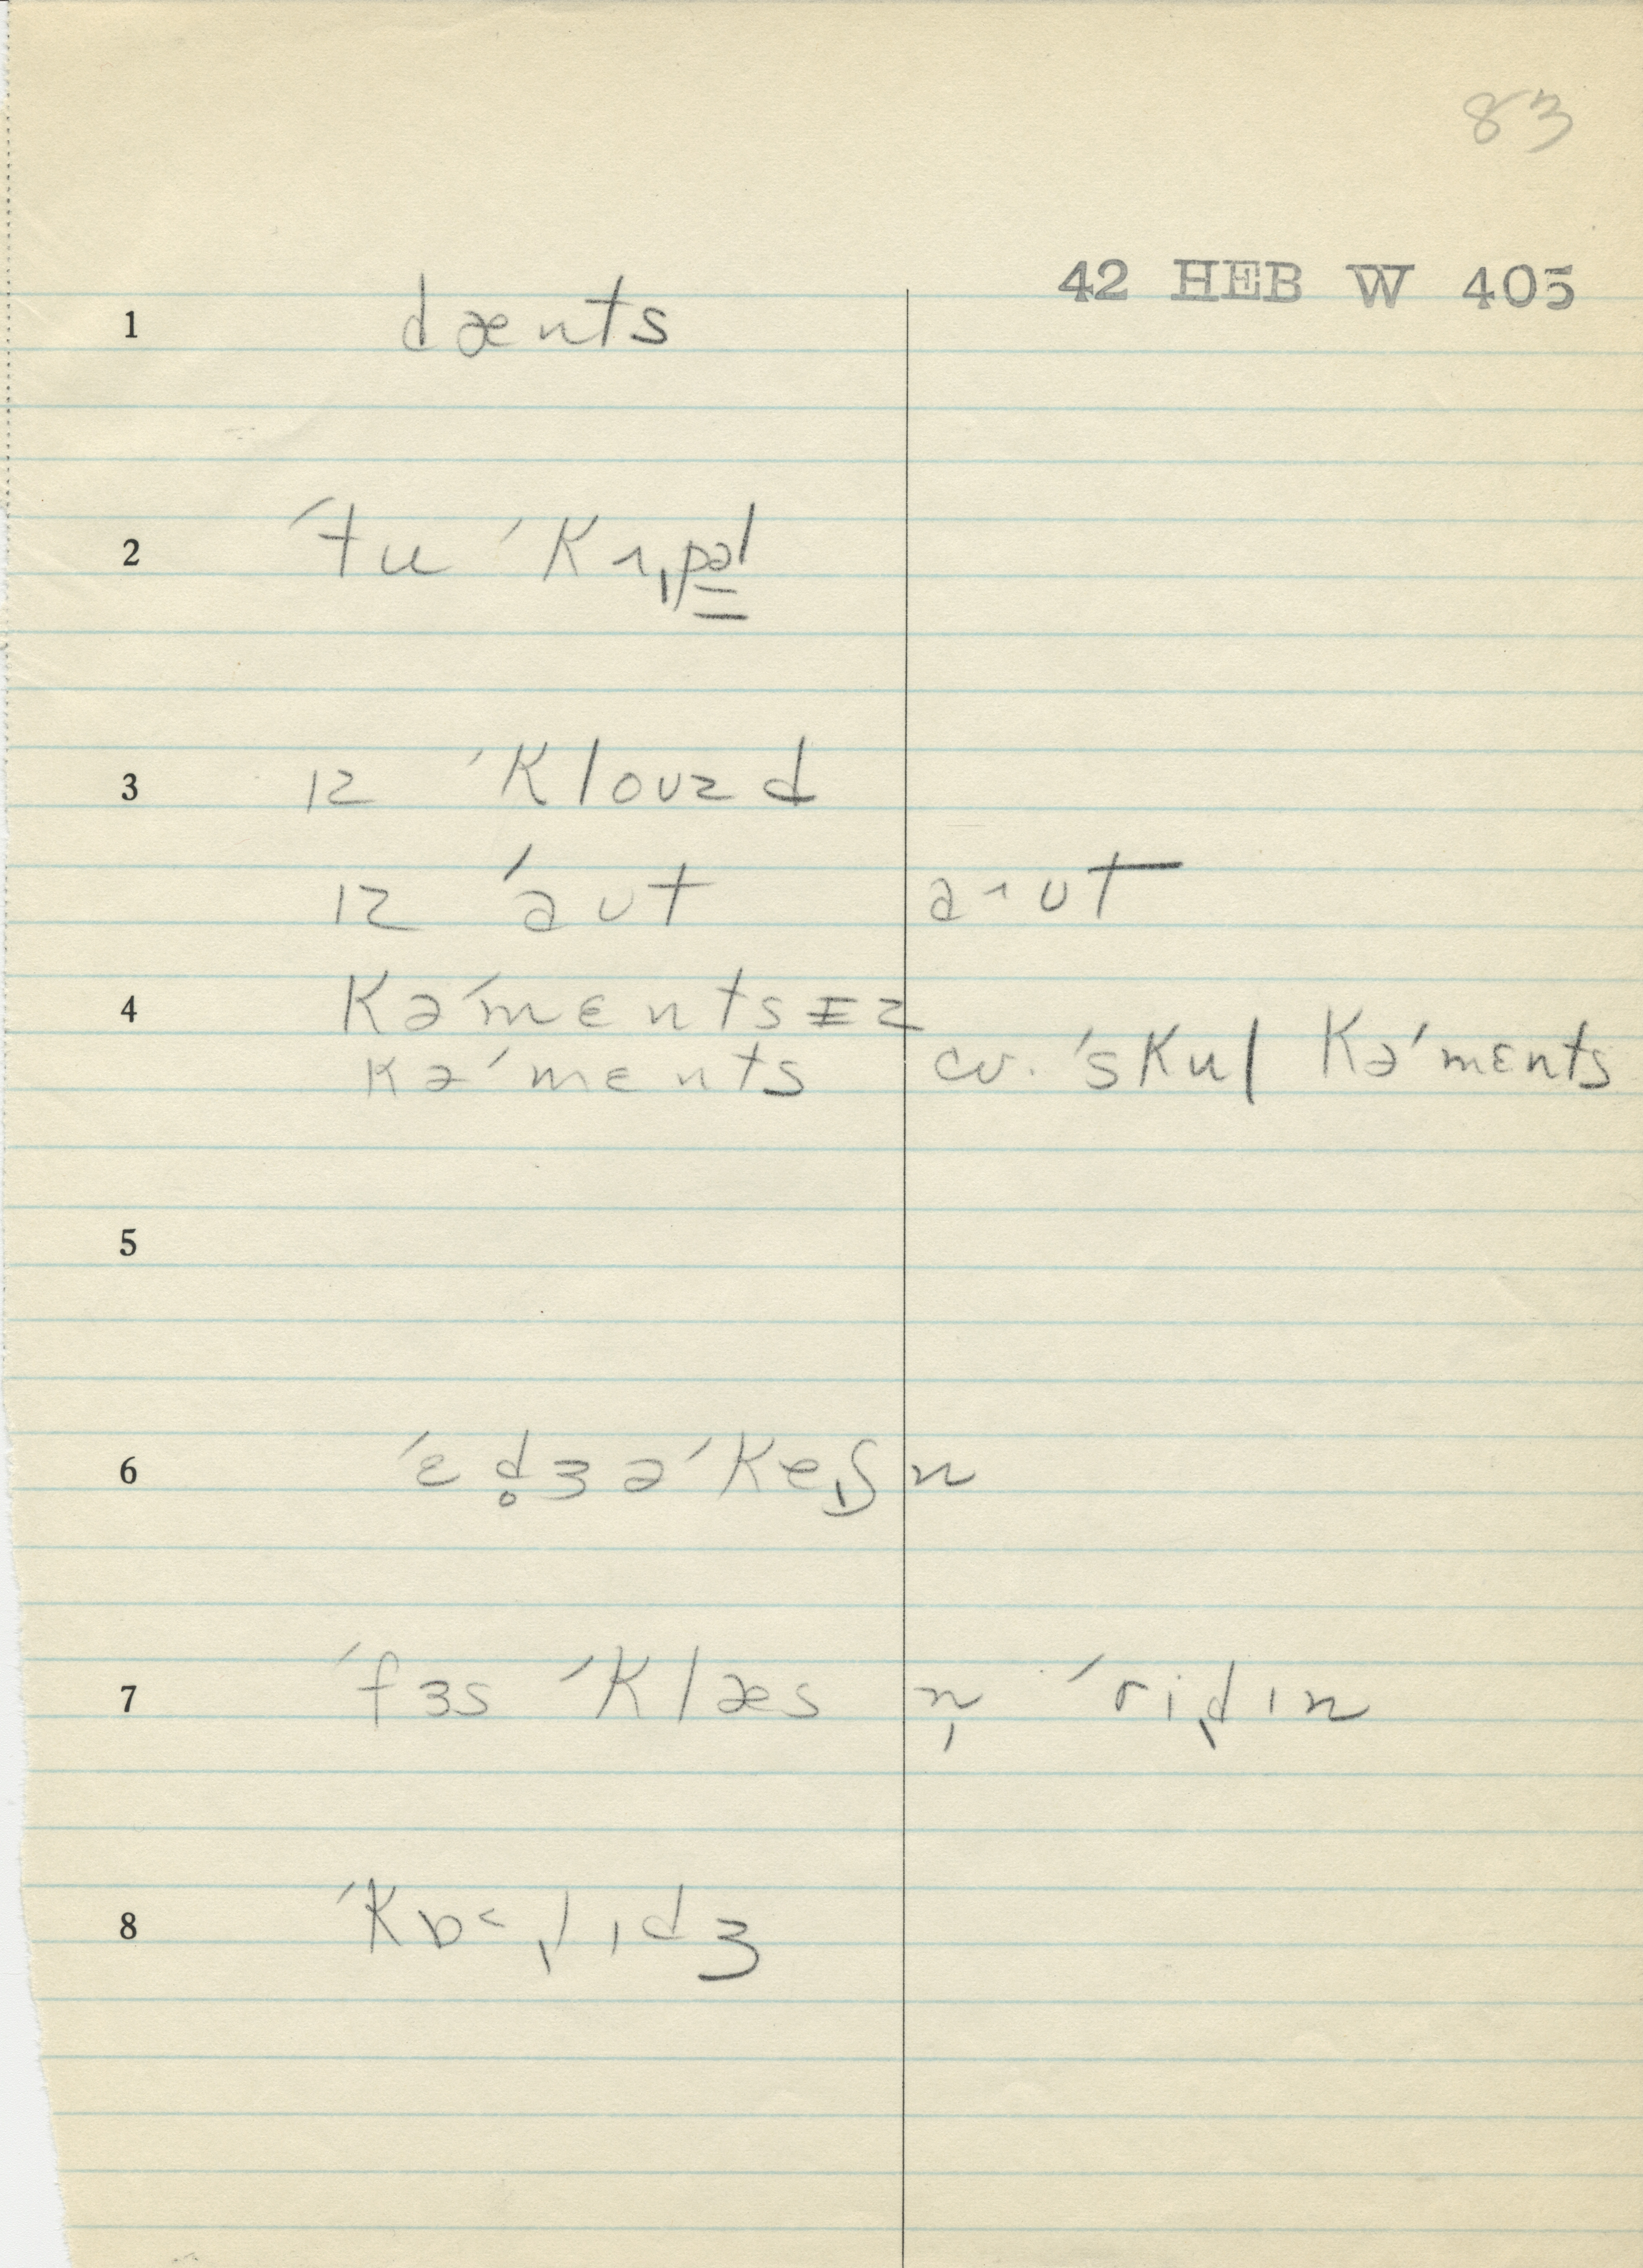 83
42 HEB W 405
1 dænts
2 ˈtu ˈkɪ˰pəl
3 ɪz ˈklouzd
ɪz ˈaut a˄ut
4 kəˈmɛntsɪz
kəˈmɛnts cv. ˈskul kəˈmɛnts
5
6 ˈɛd̥ʒəˈkeʃn
7 ˈfɜs ˈklæs n̩ ˈridɪn
8 ˈkɒ˂lɪdʒ